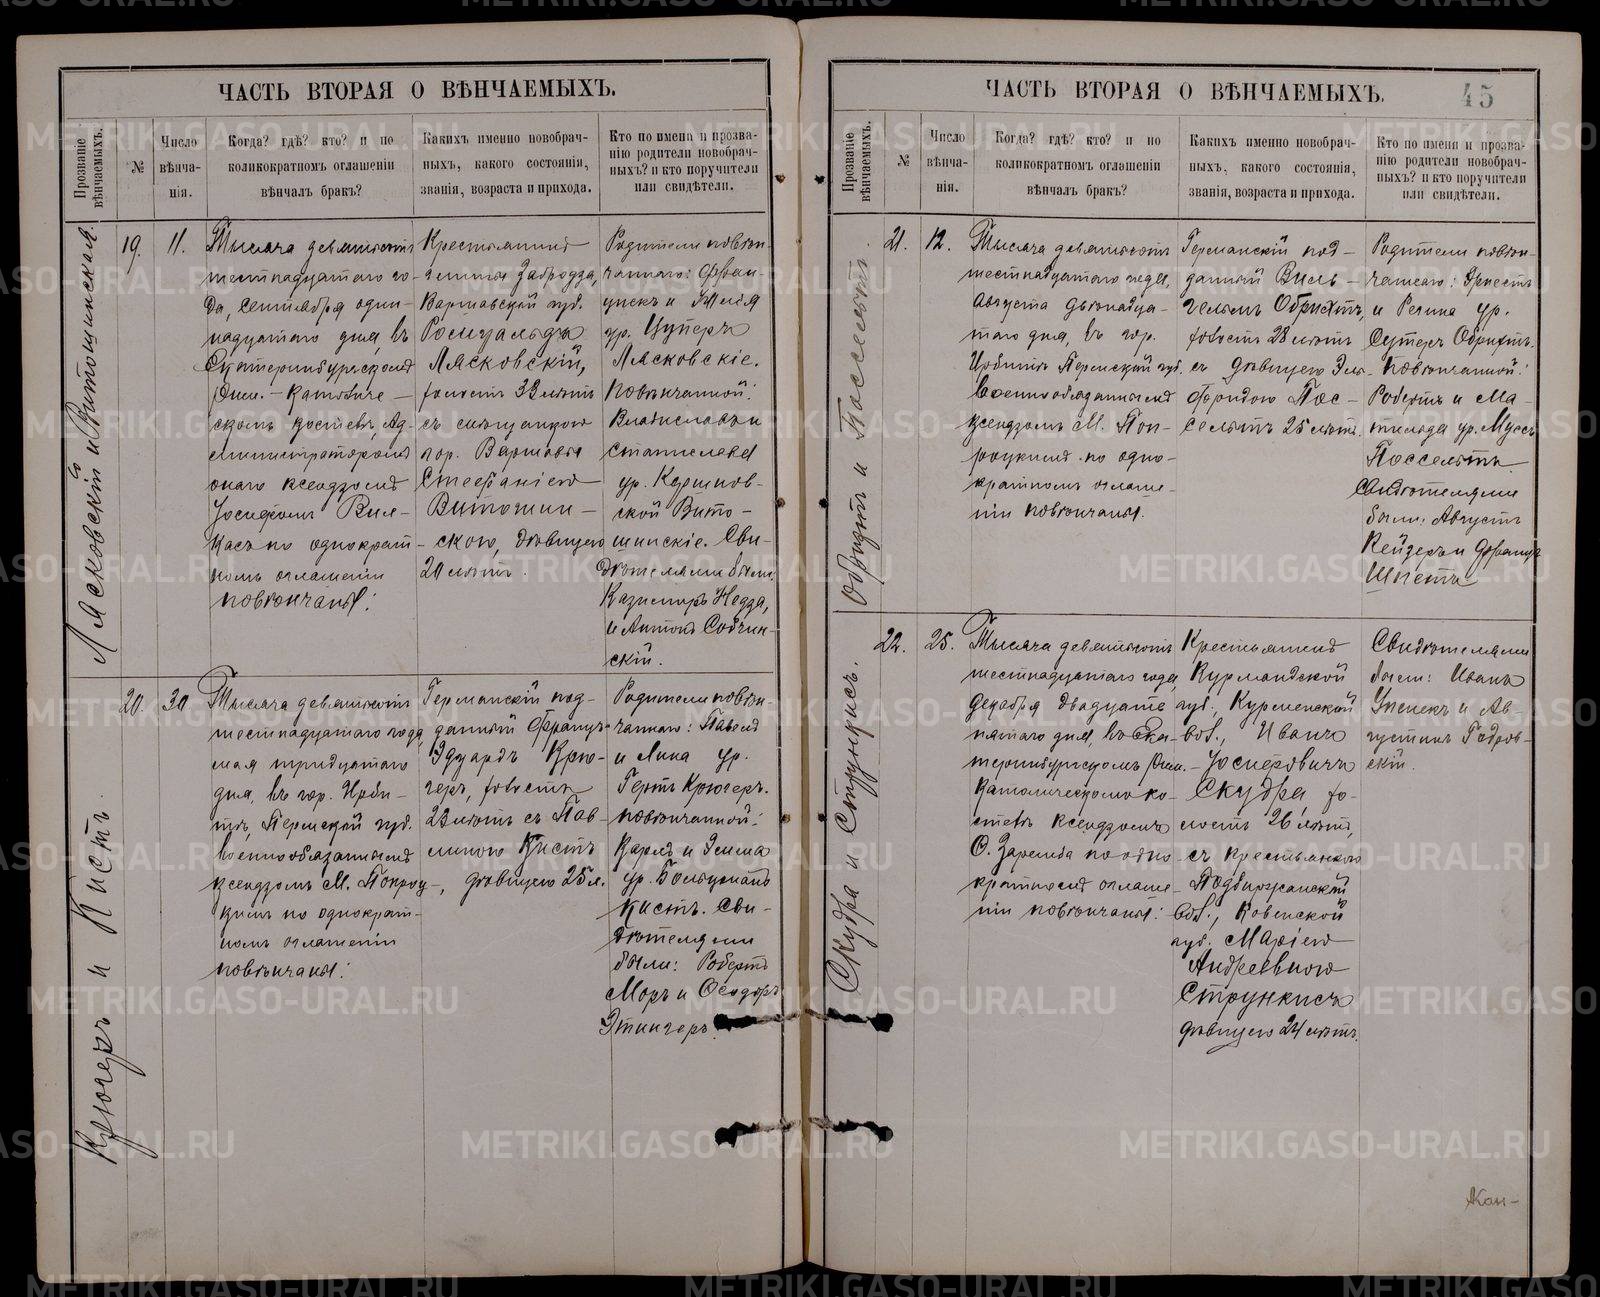 ЧАСТЬ ВТОРАЯ О ВѢНЧАЕМЫХЪ.
Прозваніе вѣнчаемыхъ.
№
Число
вѣнча-
нія.
Когда? гдѣ? кто? и по
коликократномъ оглашеніи
вѣнчалъ бракъ?
Какихъ именно новобрач-
ныхъ, какого состоянія,
званія, возраста и прихода.
Кто по имени и прозва-
нію родители новобрач-
ныхъ? и кто поручители
или свидѣтели.
Лясковскій и Витошинская.
19.
11.
Тысяча девятьсотъ
шестнадцатаго го-
да, сентября один-
надцатаго дня, въ
Екатеринбургскомъ
Рим.-Католиче-
скомъ костелѣ, Ад-
министраторомъ
онаго ксендзомъ
Іосифомъ Вил-
касъ по однократ-
номъ оглашеніи
повѣнчаны:
Крестьянинъ
гмины Забродзе,
Варшавской губ.
Ромуальдъ
Лясковскій,
холостъ 32 лѣтъ
съ мѣщанкою
гор. Варшавы
Стефаніею
Витошин-
скою, дѣвицею
20 лѣтъ.
Родители повѣн-
чаннаго: Фран-
цискъ и
ур. Цуперъ
Лясковскіе.
Повѣнчанной:
Владиславъ и
Станислава
ур. Коршнов-
ской Вито-
шинскіе. Сви-
дѣтелями были:
Казиміръ Недза,
и Антонъ Собчин-
скій.
Крюгеръ и Кистъ.
20.
30
Тысяча девятьсотъ
шестнадцатаго года,
мая тридцатаго
дня, въ гор. Ирби-
тѣ, Пермской губ.
военнообязаннымъ
ксендзомъ М. Покроц-
кимъ по однократ-
номъ оглашеніи
повѣнчаны:
Германскій под-
данный Францъ-
Эдуардъ Крю-
геръ, холостъ
23 лѣтъ съ Пав-
линою Кистъ
дѣвицею 25 л.
Родители повѣн-
чаннаго: Павелъ
и Лина ур.
Гертъ Крюгеръ.
повѣнчанной:
Карлъ и Эмма
ур. Больцманъ
Кистъ. Сви-
дѣтелями
были: Робертъ
Моръ и Ѳеодоръ
Этингеръ.
ЧАСТЬ ВТОРАЯ О ВѢНЧАЕМЫХЪ.
45
Прозваніе вѣнчаемыхъ.
№
Число
вѣнча-
нія.
Когда? гдѣ? кто? и по
коликократномъ оглашеніи
вѣнчалъ бракъ?
Какихъ именно новобрач-
ныхъ, какого состоянія,
званія, возраста и прихода.
Кто по имени и прозва-
нію родители новобрач-
ныхъ? и кто поручители
или свидѣтели.
Обрихтъ и Поссельтъ
21.
12.
Тысяча девятьсотъ
шестнадцатаго года,
августа двѣнадца-
таго дня, въ гор.
Ирбитѣ Пермской губ.
военнообязаннымъ
ксендзомъ М. Пок-
роцкимъ по одно-
кратномъ оглаше-
ніи повѣнчаны.
Германскій под-
данный Виль-
гельмъ Обрихтъ,
холостъ 28 лѣтъ
съ дѣвицею Эль-
фридою Пос-
сельтъ 25 лѣтъ.
Родители повѣн-
чаннаго: Эрнестъ
и Регина ур.
Сутеръ Обрихтъ.
Повѣнчанной:
Робертъ и Ма-
тильда ур. Муссъ
Поссельтъ
Свидѣтелями
были: Августъ
Кейзеръ и Францъ
Шпетъ
Скудра и Стрункисъ.
22.
25.
Тысяча девятьсотъ
шестнадцатаго года,
декабря двадцать
пятаго дня, въ Ека-
теринбургскомъ Рим.-
Католическомъ ко-
стелѣ ксендзомъ
О. Заремба по одно-
кратномъ оглаше-
ніи повѣнчаны:
Крестьянинъ
Курляндской
губ., Курменской
вол., Иванъ
Іосифовичъ
Скудра, хо-
лостъ 26 лѣтъ,
съ крестьянкою
Подбиржанской
вол., Ковенской
губ. Маріею
Андреевною
Стрункисъ
дѣвицею 24 лѣтъ.
Свидѣтелями
были: Иванъ
и Ав-
густинъ
скій.
METRIKI.GASO-URAL.RU